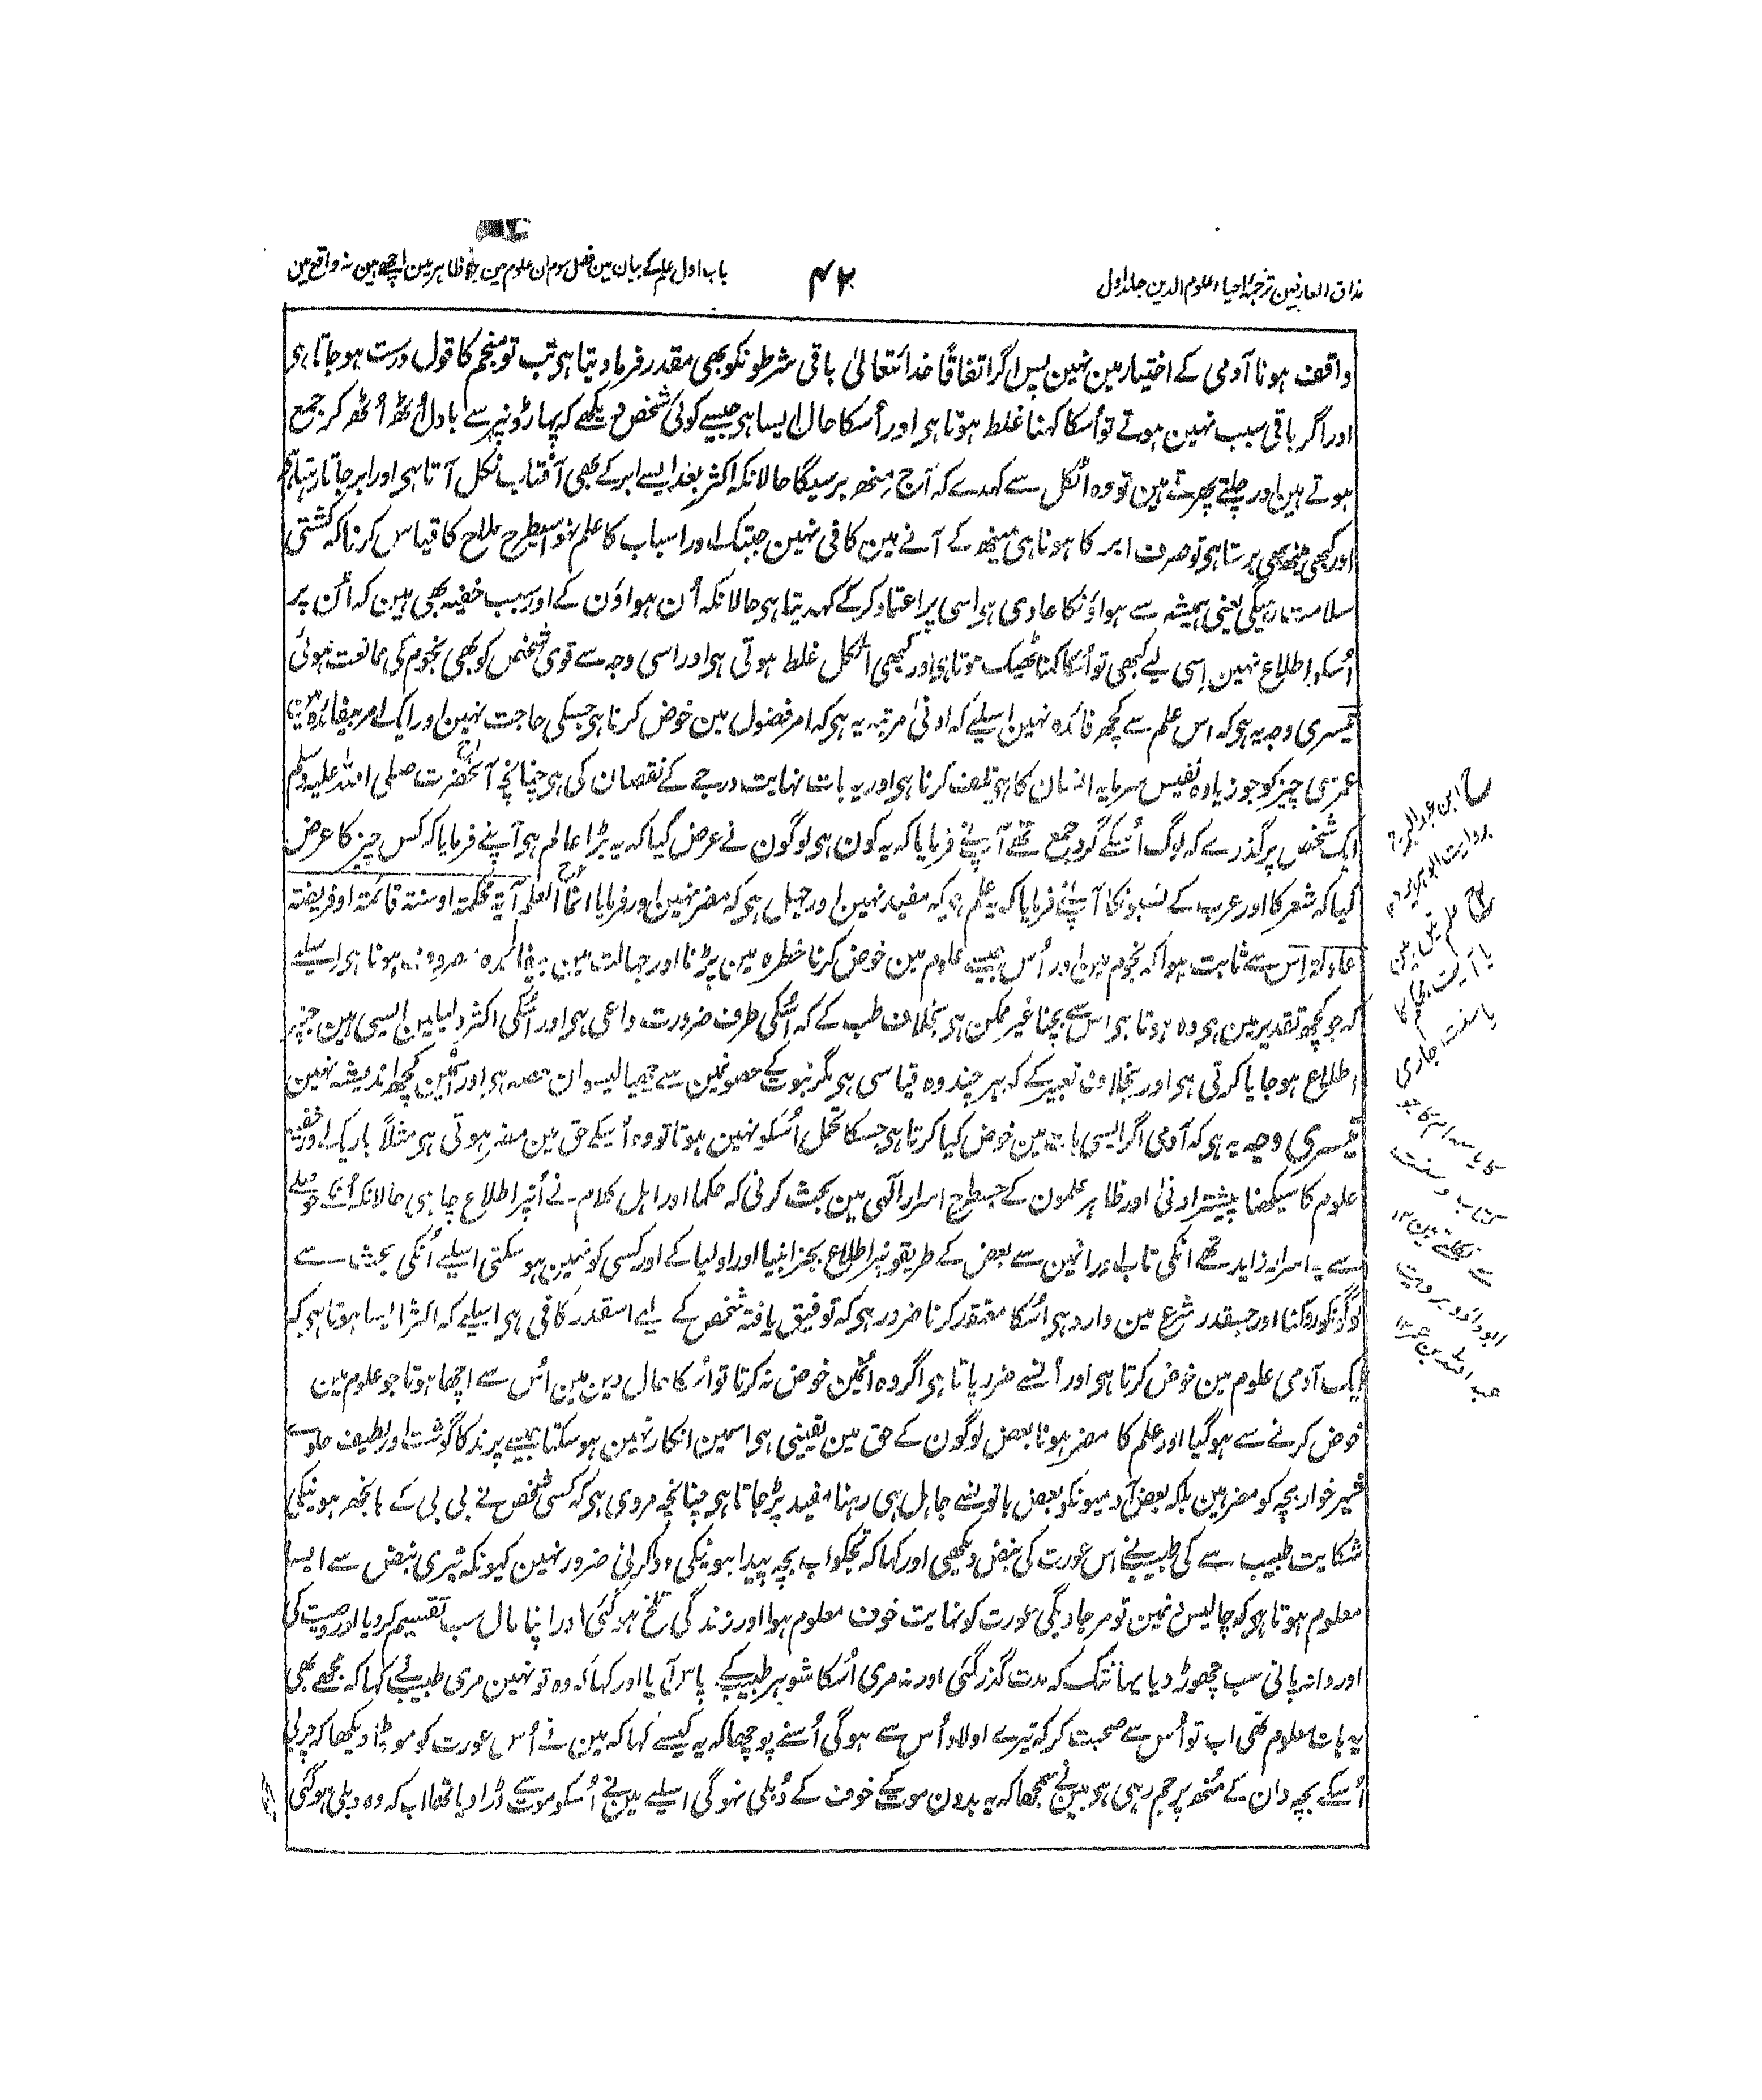 مذاق العارفین ترجمۂ احیاء علوم الدین جلد اول
۴۲
باب اول علم کے بیان مین فصل سوم ان علوم مین جو ظاہر مین اچھے ہین نہ واقع مین
واقف ہونا آدمی کے اختیار مین نہین پس اگر اتفاقًا خدائتعالیٰ باقی شرطونکو بھی مقدر فرما دیتا ہی تب تو منجم کا قول درست ہو جاتا ہی
اور اگر باقی سبب نہین ہوتے تو اُسکا کہنا غلط ہوتا ہی اور اُسکا حال ایسا ہی جیسے کوئی شخص دیکھے کہ پہاڑونپر سے بادل اُٹھ اُٹھ کر جمع
ہوتے ہین اور چلتے پھرتے ہین تو وہ اٹکل سے کہدے کہ آج مِنھ برسیگا حالانکہ اکثر بعد ایسے ابر کے بھی آفتاب نکل آتا ہی اور ابر جاتا رہتا ہی
اور کبھی مِنھ بھی برستا ہی تو صرف ابر کا ہونا ہی مینھ کے آنے مین کافی نہین جبتک اور اسباب کا علم نہو اسیطرح ملاح کا قیاس کرنا کہ کشتی
سلامت رہیگی یعنی ہمیشہ سے ہواؤنکا عادی ہی اسی پر اعتماد کرکے کہدیتا ہی حالانکہ اُن ہواؤن کے اور سبب خفیہ بھی ہین کہ اُن پر
اُسکو اطلاع نہین اِسی لیے کبھی تو اُسکا کہنا ٹھیک ہوتا ہی اور کبھی اٹکل غلط ہوتی ہی اور اسی وجہ سے قوی شخص کو بھی نجوم کی ممانعت ہوئی
تیسری وجہ یہ ہی کہ اس علم سے کچھ فائدہ نہین اسلیے کہ ادنیٰ مرتبہ یہ ہی کہ امر فضول مین خوض کرنا ہی جسکی حاجت نہین اور ایک امر بیفائدہ مین
عمر سی چیز کو جو زیادہ نفیس سرمایہ انسان کا ہی تلف کرنا ہی اور یہ بات نہایت درجے کے نقصان کی ہی چنانچہ آنحضرت صلی اللہ علیہ وسلم
ایک شخص پر گذرے کہ لوگ اُسکے گرد جمع تھے آپنے فرمایا کہ یہ کون ہی لوگون نے عرض کیا کہ یہ بڑا عالم ہی آپنے فرمایا کہ کس چیز کا عرض
کیا کہ شعر کا اور عرب کے نسبونکا آپنے فرمایا کہ یہ علم ہی کہ مفید نہین اور جہل ہی کہ مضر نہین اور فرمایا انما العلم آیۃ محکمۃ او سنۃ قائمۃ او فریضۃ
عادلۃ اِس سے ثابت ہوا کہ نجوم مین اور اُس جیسے علوم مین خوض کرنا خطرہ مین پڑنا اور جہالت مین بیفائدہ مصروف ہونا ہی اسلیے
کہ جو کچھ تقدیر مین ہی وہ ہوتا ہی اس سے بچنا غیر ممکن ہی بخلاف طب کے کہ اُسکی طرف ضرورت داعی ہی اور اُسکی اکثر دلیلین ایسی ہین جنپر
اطلاع ہو جایا کرتی ہی اور بخلاف تعبیر کے کہ ہر چند وہ قیاسی ہی مگر نبوت کے حصونمین سے چھیالیسوان حصہ ہی اور اسمین کچھ اندیشہ نہین
تیسری وجہ یہ ہی کہ آدمی اگر ایسی بات مین خوض کیا کرتا ہی جسکا تحمل اُسکو نہین ہوتا تو وہ اُسکے حق مین مضر ہوتی ہی مثلاً باریک اور خفیہ
علوم کا سیکھنا پیشتر ادنیٰ اور ظاہر علمون کے جسطرح اسرار آلٰہی مین بحث کرنی کہ حکما اور اہل کلام نے اُنپر اطلاع چاہی حالانکہ اُنکے حوصلے
سے یہ اسرار زاید تھے انکی تاب اور انمین سے بعض کے طریقونپر اطلاع بجز انبیا اور اولیا کے اور کسی کو نہین ہو سکتی اسلیے اُنکی بحث سے
لوگونکو روکنا اور جسقدر شرع مین وارد ہی اُسکا معتقد کرنا ضرور ہی کہ توفیق یافتہ شخص کے لیے اسقدر کافی ہی اسلیے کہ اکثر ایسا ہوتا ہی کہ
ایک آدمی علوم مین خوض کرتا ہی اور اُنسے ضرر پاتا ہی اگر وہ اُنمین خوض نہ کرتا تو اُسکا حال دین مین اُس سے اچھا ہوتا جو علوم مین
خوض کرنے سے ہو گیا اور علم کا مضر ہونا بعض لوگون کے حق مین یقینی ہی اسمین انکار نہین ہو سکتا جیسے پرند کا گوشت اور لطیف حلوے
شیر خوار بچہ کو مضر ہین بلکہ بعض آدمیونکو بعض باتونسے جاہل ہی رہنا مفید پڑ جاتا ہی چنانچہ مروی ہی کہ کسی شخص نے بی بی کے بانجھ ہونیکی
شکایت طبیب سے کی طبیب نے اس عورت کی نبض دیکھی اور کہا کہ تجکو اب بچہ پیدا ہونیکی دوا کرنی ضرور نہین کیونکہ تیری نبض سے ایسا
معلوم ہوتا ہی کہ چالیس دنمین تو مر جاویگی عورت کو نہایت خوف معلوم ہوا اور زندگی تلخ ہو گئی اور اپنا مال سب تقسیم کر دیا اور وصیت کی
اور دانہ پانی سب چھوڑ دیا یہانتک کہ مدت گذر گئی اور نہ مری اُسکا شوہر طبیب کے پاس آیا اور کہا کہ وہ تو نہین مری طبیب نے کہا کہ مجھے بھی
یہ بات معلوم تھی اب تو اُس سے صحبت کر کہ تیرے اولاد اُس سے ہوگی اُسنے پوچھا کہ یہ کیسے کہا کہ مین نے اُس عورت کو موٹا دیکھا کہ چربی
اُسکے بچہ دان کے مُنھ پر جم رہی ہی مینے سمجھا کہ یہ بدون موت کے خوف کے دُبلی نہوگی اسلیے مین نے اُسکو موت سے ڈرا دیا تھا اب کہ وہ دبلی ہو گئی
ابن عبدالبر
بروایت ابو ہریرہ
علم تین ہین
یا آیت محکم کا
یا سنت جاری
کا یا
کتاب و سنت
سے نکلتے ہین ۱۲
ابو داؤد بروایت
عبد اللہ بن